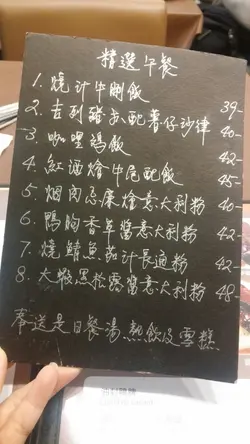 精選午餐
1. 燒汁牛脷飯 39-
2. 吉列豬扒配薯仔沙律 40-
3. 咖哩鷄飯 42-
4. 紅酒燴牛尾配飯 45-
5. 烟肉忌廉燴意大利粉 40-
6. 鴨胸香草醬意大利粉 42-
7. 燒鯖魚茄汁長通粉 42-
8. 大蝦黑松露醬意大利粉 48-
奉送是日餐湯 熱飲及雪糕